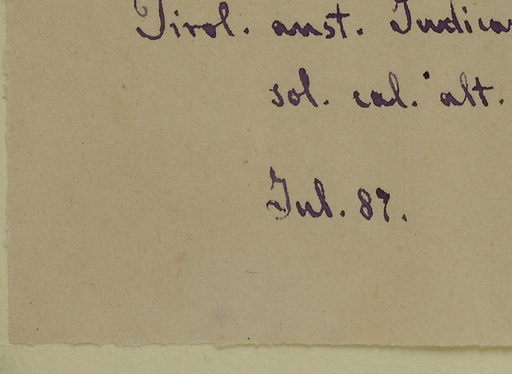 Tirol. aust. Judica
sol. cal. alt.
Jul. 87.